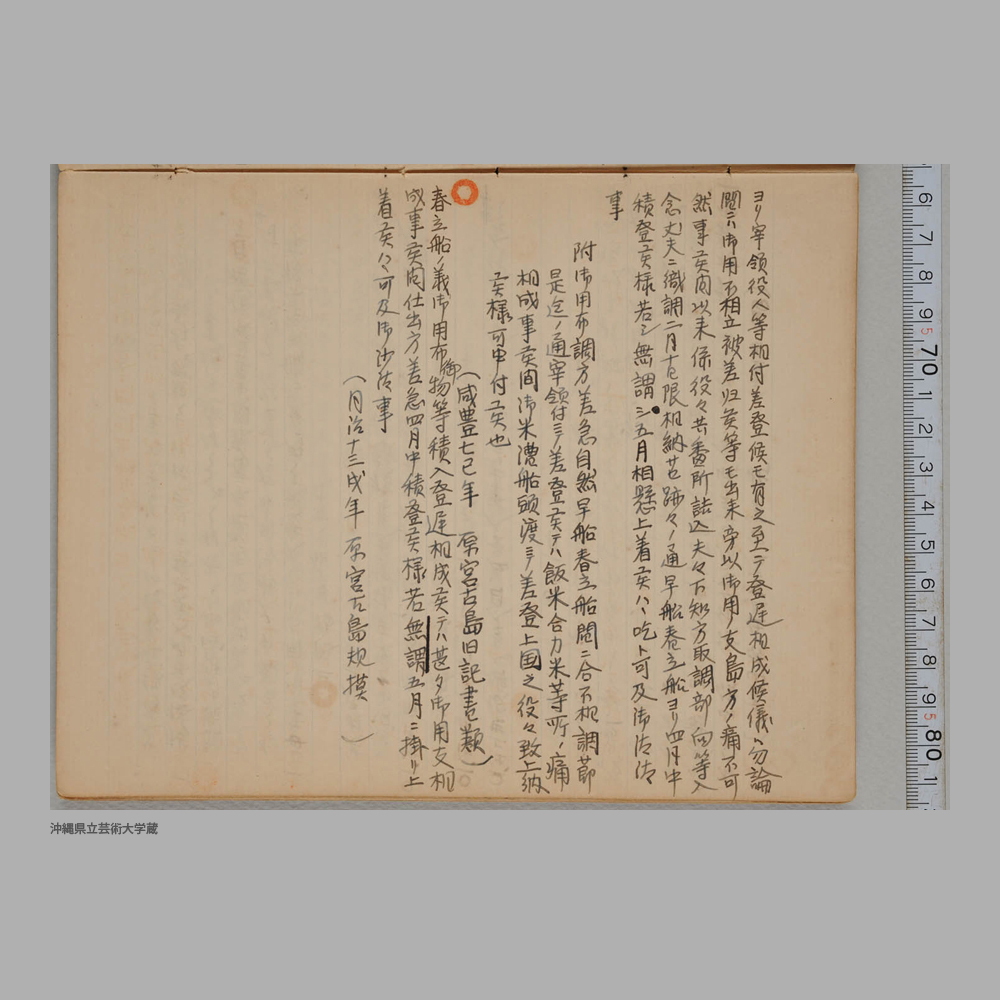 ヨリ宰領役人等相付差登候モ有之至テ登遅相成候儀ハ勿論
間ニハ御用不相立被差帰候等モ出来旁以御用ノ支島方ノ痛不可
然事候間以来係役々共番所詰込夫々下知方取調部向等入
念丈夫ニ織調二月十日限相納サセ跡々ノ通早船春立船ヨリ四月中
積登候様若シ無謂シ五月相懸上着候ハヽ吃ト可及御沙汰
事
附御用布調方差急自然早船春立船間ニ合不相調節
是迄ノ通宰領付ニテ差登候テハ飯米合力米等所ノ痛
相成事候間御米漕船頭渡ニテ差登上国之役々致上納
候様可申付候也
(咸豊七巳年 原宮古島旧記書類)
春立船ノ義御用布御物等積入登遅相成候テハ甚タ御用支相
成事候間仕出方差急四月中積登候様若無謂五月ニ掛リ上
着候ハヽ可及御沙汰事
(同治十三戌年 原宮古島規模)
6 7 8 9 70 1 2 3 4 5 6 7 8 9 80 1
沖縄県立芸術大学蔵